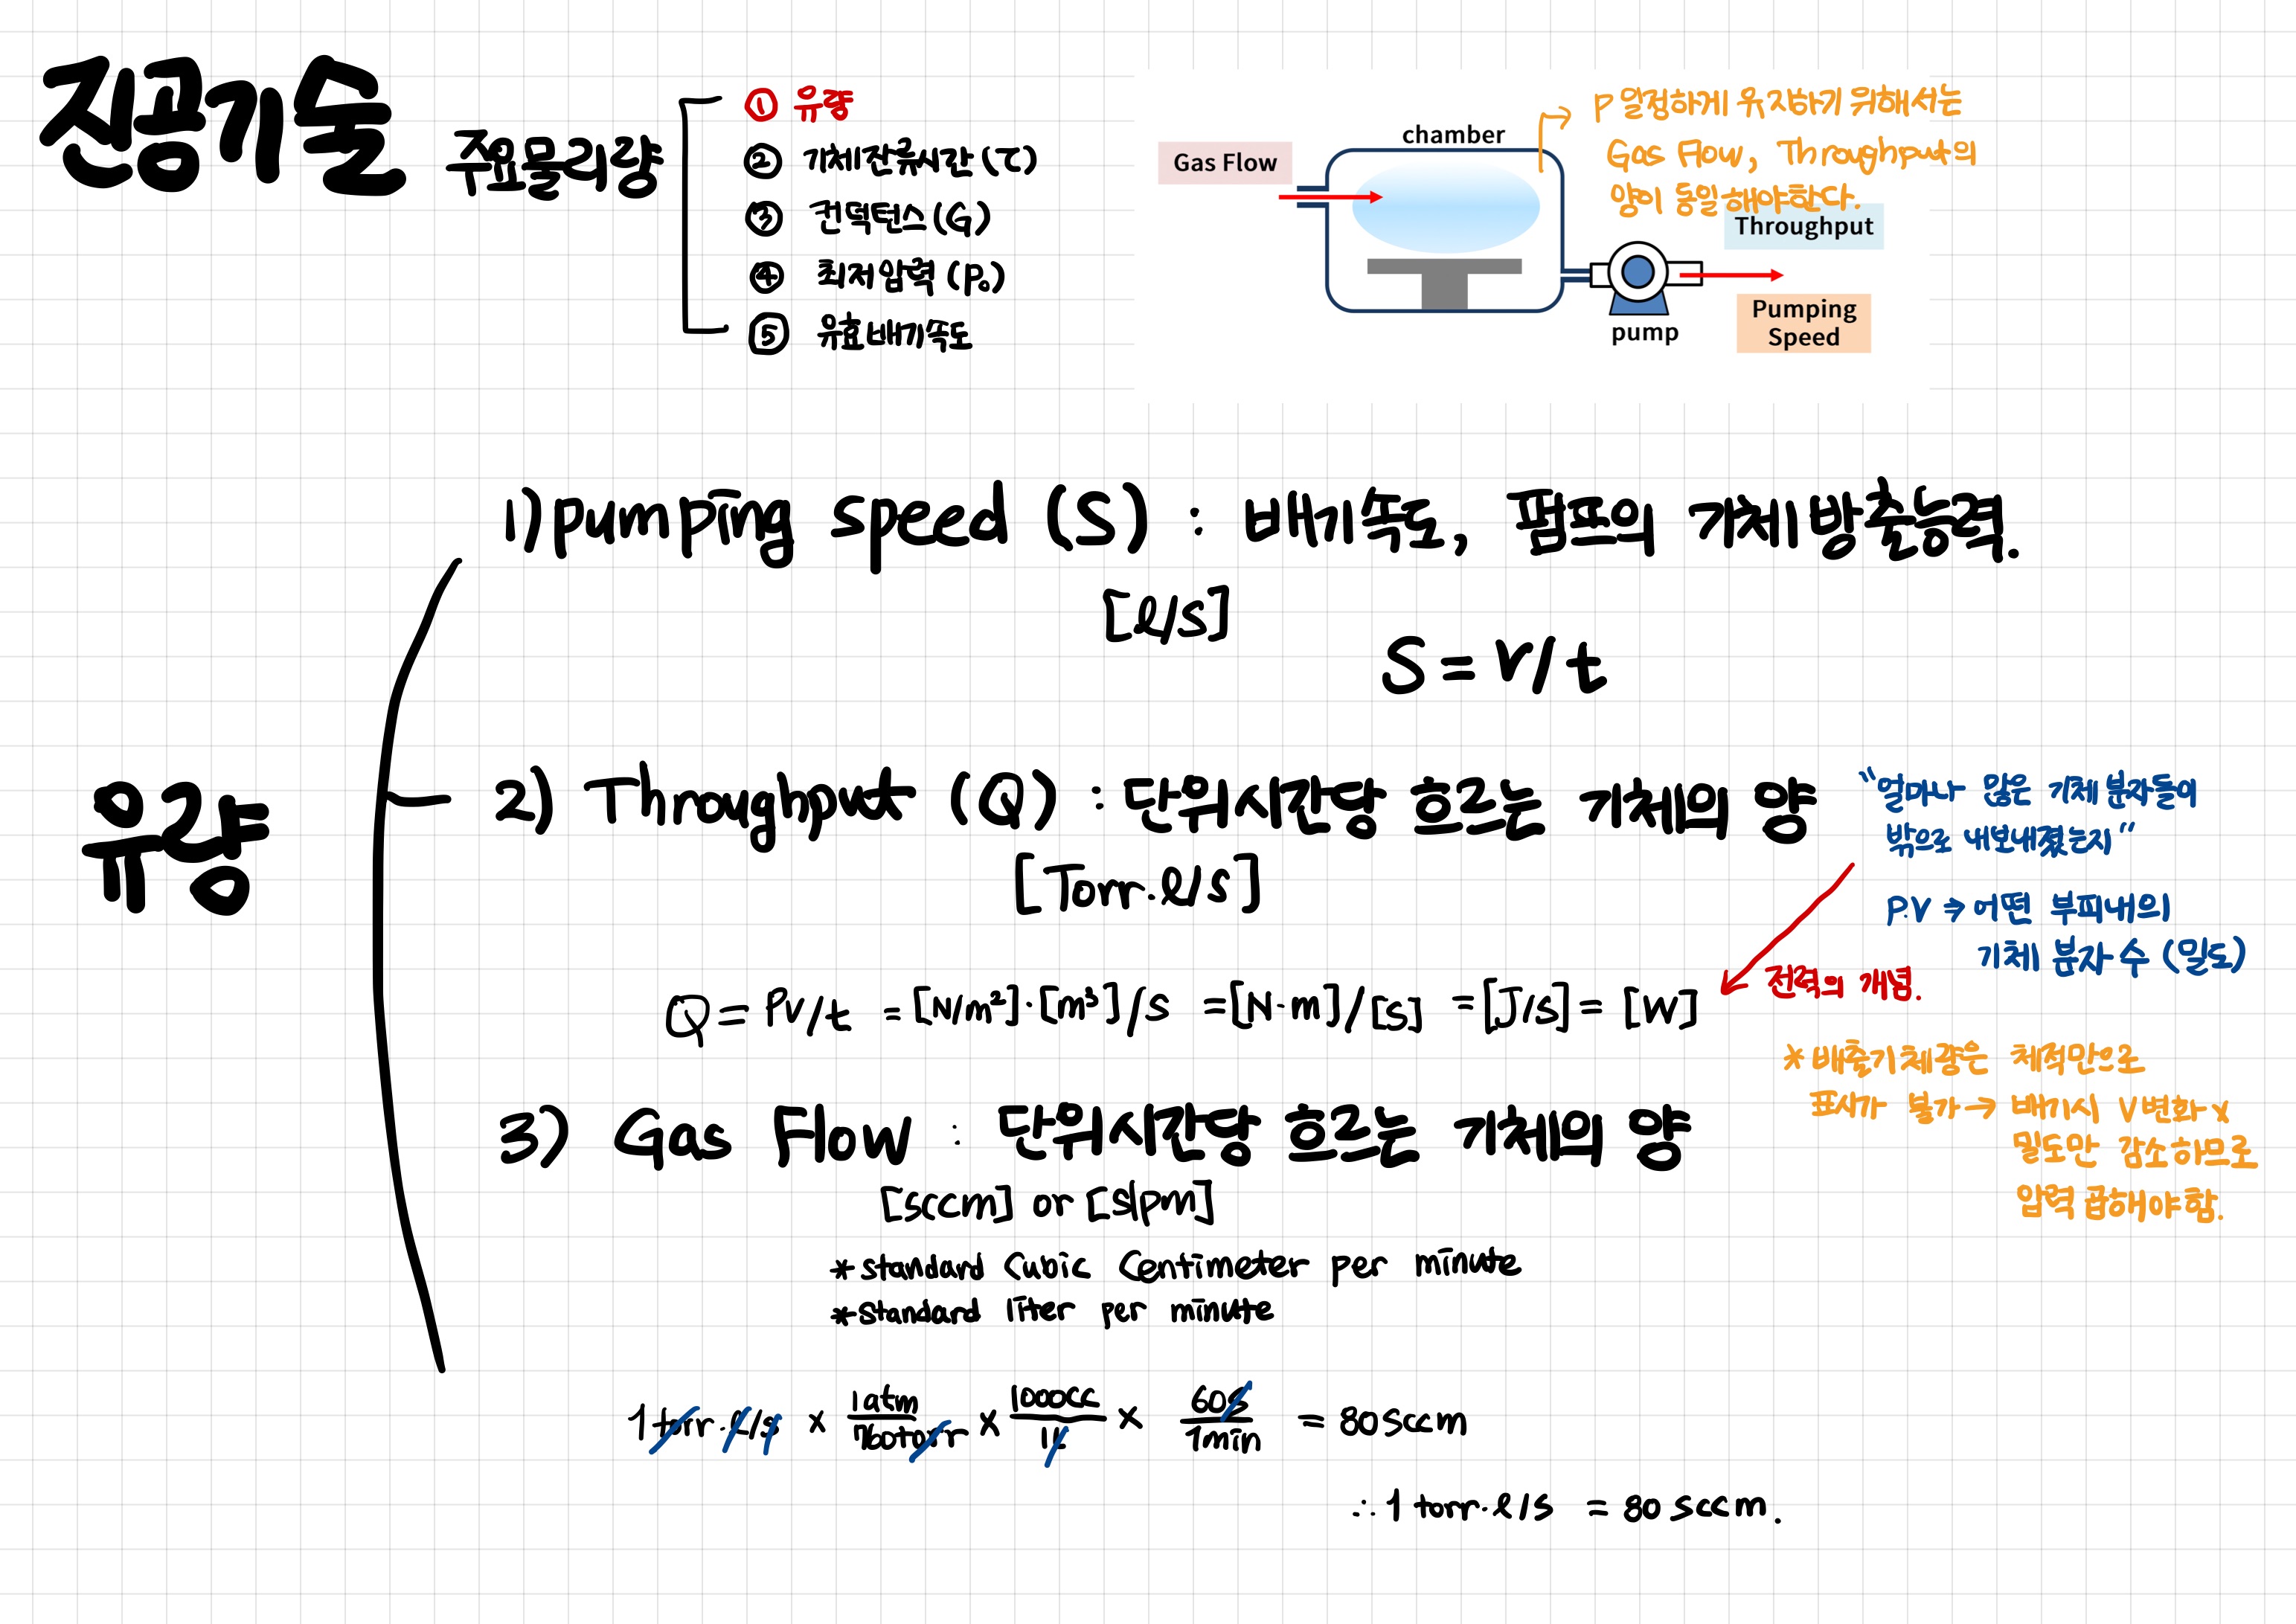 진공기술 주요물리량
① 유량
② 기체잔류시간 (τ)
③ 컨덕턴스 (G)
④ 최저압력 (P₀)
⑤ 유효배기속도
Gas Flow
chamber
P 일정하게 유지하기 위해서는
Gas Flow, Throughput의
양이 동일해야한다.
Throughput
Pumping
Speed
pump
유량
1) pumping speed (S) : 배기속도, 펌프의 기체방출능력.
[ℓ/s]
S = V/t
2) Throughput (Q) : 단위시간당 흐르는 기체의 양
[Torr.ℓ/s]
"얼마나 많은 기체 분자들이
밖으로 내보내졌는지"
P.V → 어떤 부피내의
기체 분자 수 (밀도)
Q = PV/t = [N/m²]·[m³]/s = [N·m]/[s] = [J/s] = [W]
전력의 개념.
*배출기체량은 체적만으로
표시가 불가 → 배기시 V변화 x
밀도만 감소하므로
압력 곱해야함.
3) Gas Flow : 단위시간당 흐르는 기체의 양
[sccm] or [slpm]
*standard Cubic Centimeter per minute
*standard liter per minute
1 torr.ℓ/s × 1atm/760torr × 1000cc/1L × 60s/1min = 80sccm
∴ 1 torr.ℓ/s = 80 sccm.